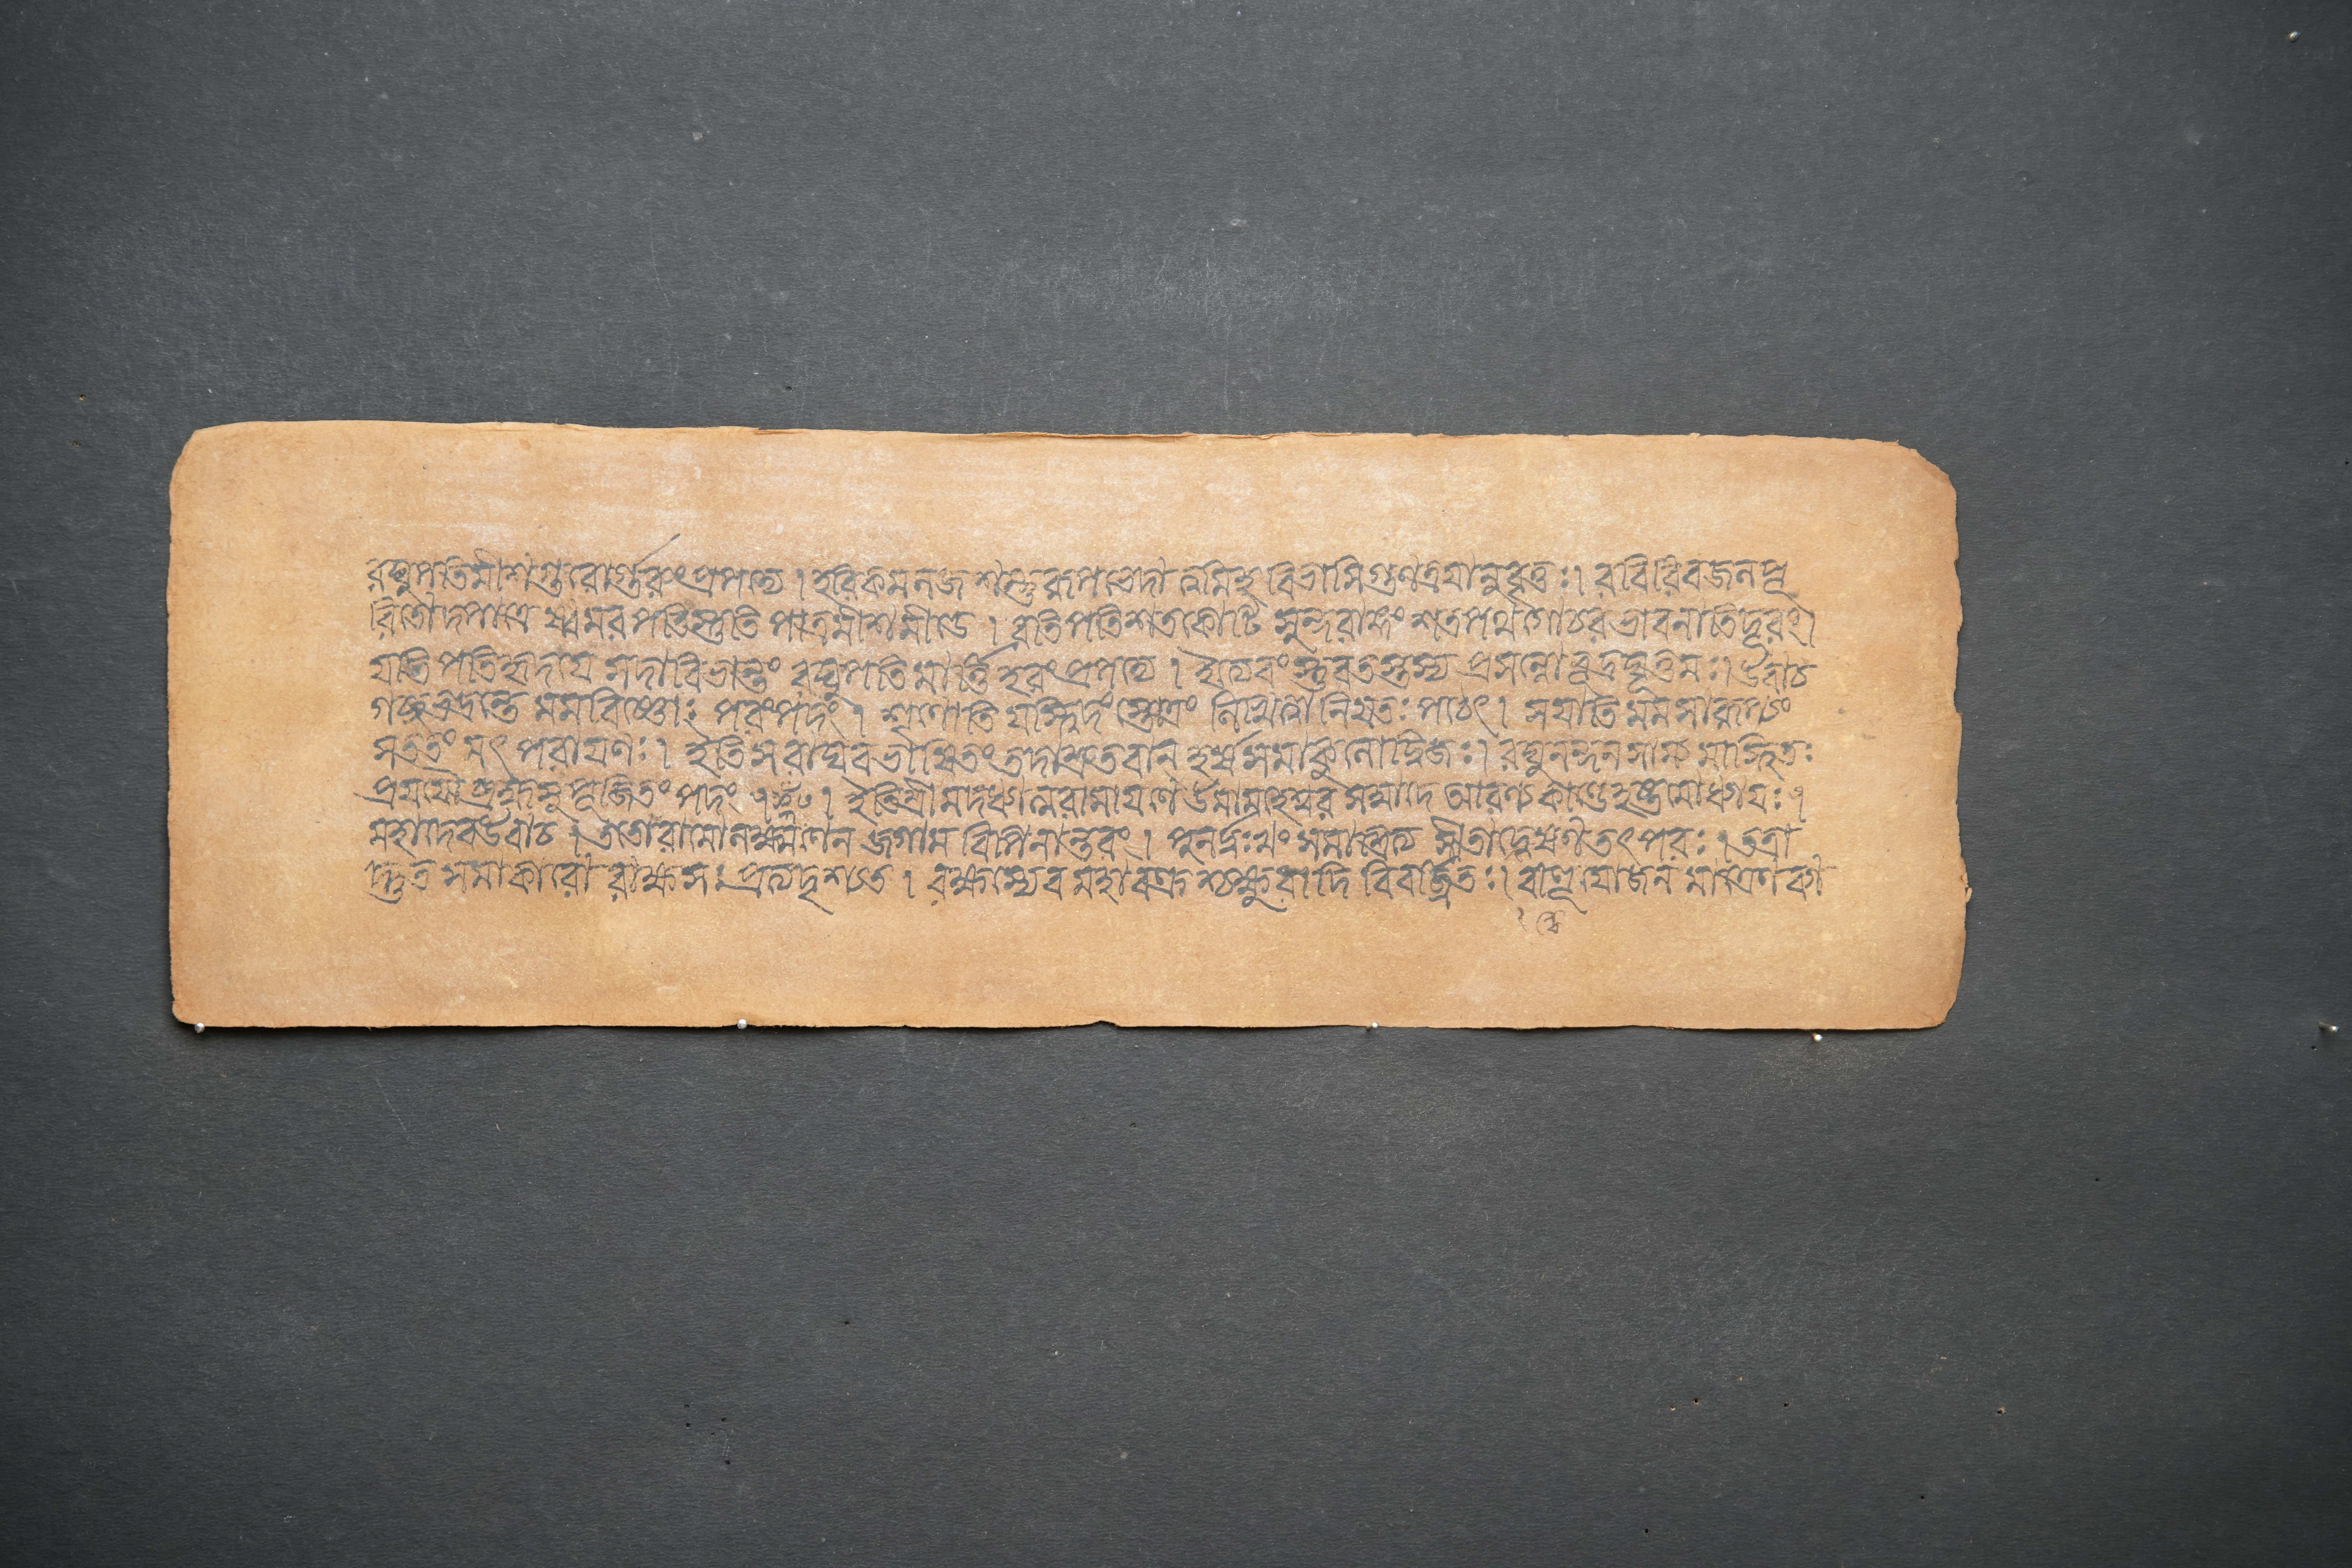 রঘুপতিমীশগুরোর্গুরুংপ্রপদ্যে । হরিকমলজশম্ভুরূপভেদৌ ত্ত্বমিহ বিভাসিগুণত্রয়ানুবৃত্তঃ । রবিরিবজলপূ
রিতোদপাত্রে ষ্বমরপতিস্তুতি পাত্রমীশমীডে । রতিপতিশতকোটি সুন্দরাঙ্গং শতপথগোচর ভাবনাতিদূরং ।
যতি পতিহৃদয়ে সদাবিভান্তং রঘুপতি মার্ত্তিহরংপ্রপদ্যে । ইত্যেবং স্তুবতস্তস্য প্রসন্নো বূদ্রঘূত্তমঃ । উবাচ
গচ্ছভদ্রন্তে মমবিষ্ণোঃ পরংপদং । শৃণোতি যইদং স্তোত্রং লিখেদ্বা নিয়তঃ পঠেৎ । সযাতি মম সারূপ্যং
সততং মৎ পরায়ণঃ । ইতি সরাঘবভাষিতং তদাশ্রুতবান হর্ষসমাকুলোদ্বিজঃ । রঘুনন্দনসাম্য মাস্থিতঃ
প্রযযৌ ব্রহ্মসুপূজিতং পদং । ইতিশ্রী মদধ্যাত্মরামায়ণে উমামহেশ্বর সম্বাদে আরণ্যকাণ্ডেহষ্টমোধ্যায়ঃ ।
মহাদেবউবাচ । ততোরামোলক্ষ্মণেন জগাম বিপিনান্তরং । পুনর্দুঃখং সমাশ্রিত্য সীতান্বেষণতৎপরঃ । তত্রা
দ্ভুত সমাকারো রাক্ষসঃ প্রত্যদৃশ্যত । বক্ষস্যেব মহাবক্ত্র শ্চক্ষুরাদি বিবর্জিতঃ । বাহূ যোজন মাত্রেণ ব্যা